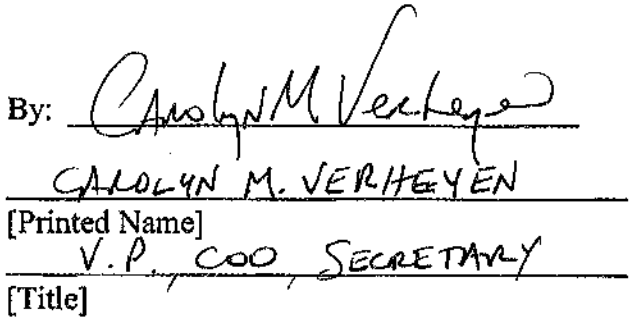 By: Carolyn M Verheyen
CAROLYN M. VERHEYEN
[Printed Name]
V.P., COO, SECRETARY
[Title]